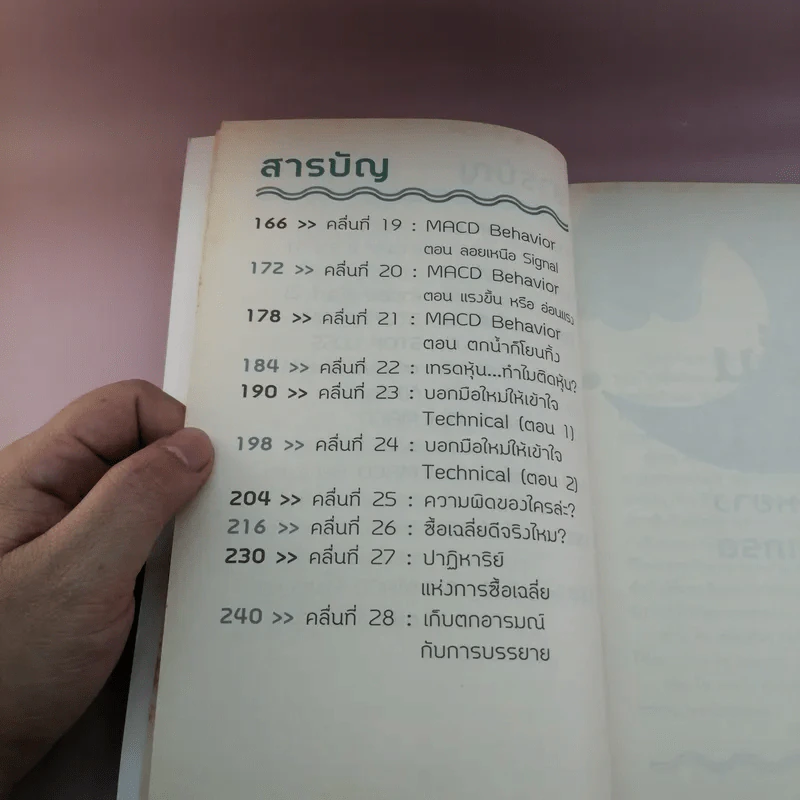 สารบัญ
166 >> คลื่นที่ 19 : MACD Behavior
ตอน ลอยเหนือ Signal
172 >> คลื่นที่ 20 : MACD Behavior
ตอน แรงขึ้น หรือ อ่อนแรง
178 >> คลื่นที่ 21 : MACD Behavior
ตอน ตกน้ำก็โยนทิ้ง
184 >> คลื่นที่ 22 : เทรดหุ้น...ทำไมติดหุ้น?
190 >> คลื่นที่ 23 : บอกมือใหม่ให้เข้าใจ
Technical (ตอน 1)
198 >> คลื่นที่ 24 : บอกมือใหม่ให้เข้าใจ
Technical (ตอน 2)
204 >> คลื่นที่ 25 : ความผิดของใครล่ะ?
216 >> คลื่นที่ 26 : ซื้อเฉลี่ยดีจริงไหม?
230 >> คลื่นที่ 27 : ปาฏิหาริย์
แห่งการซื้อเฉลี่ย
240 >> คลื่นที่ 28 : เก็บตกอารมณ์
กับการบรรยาย